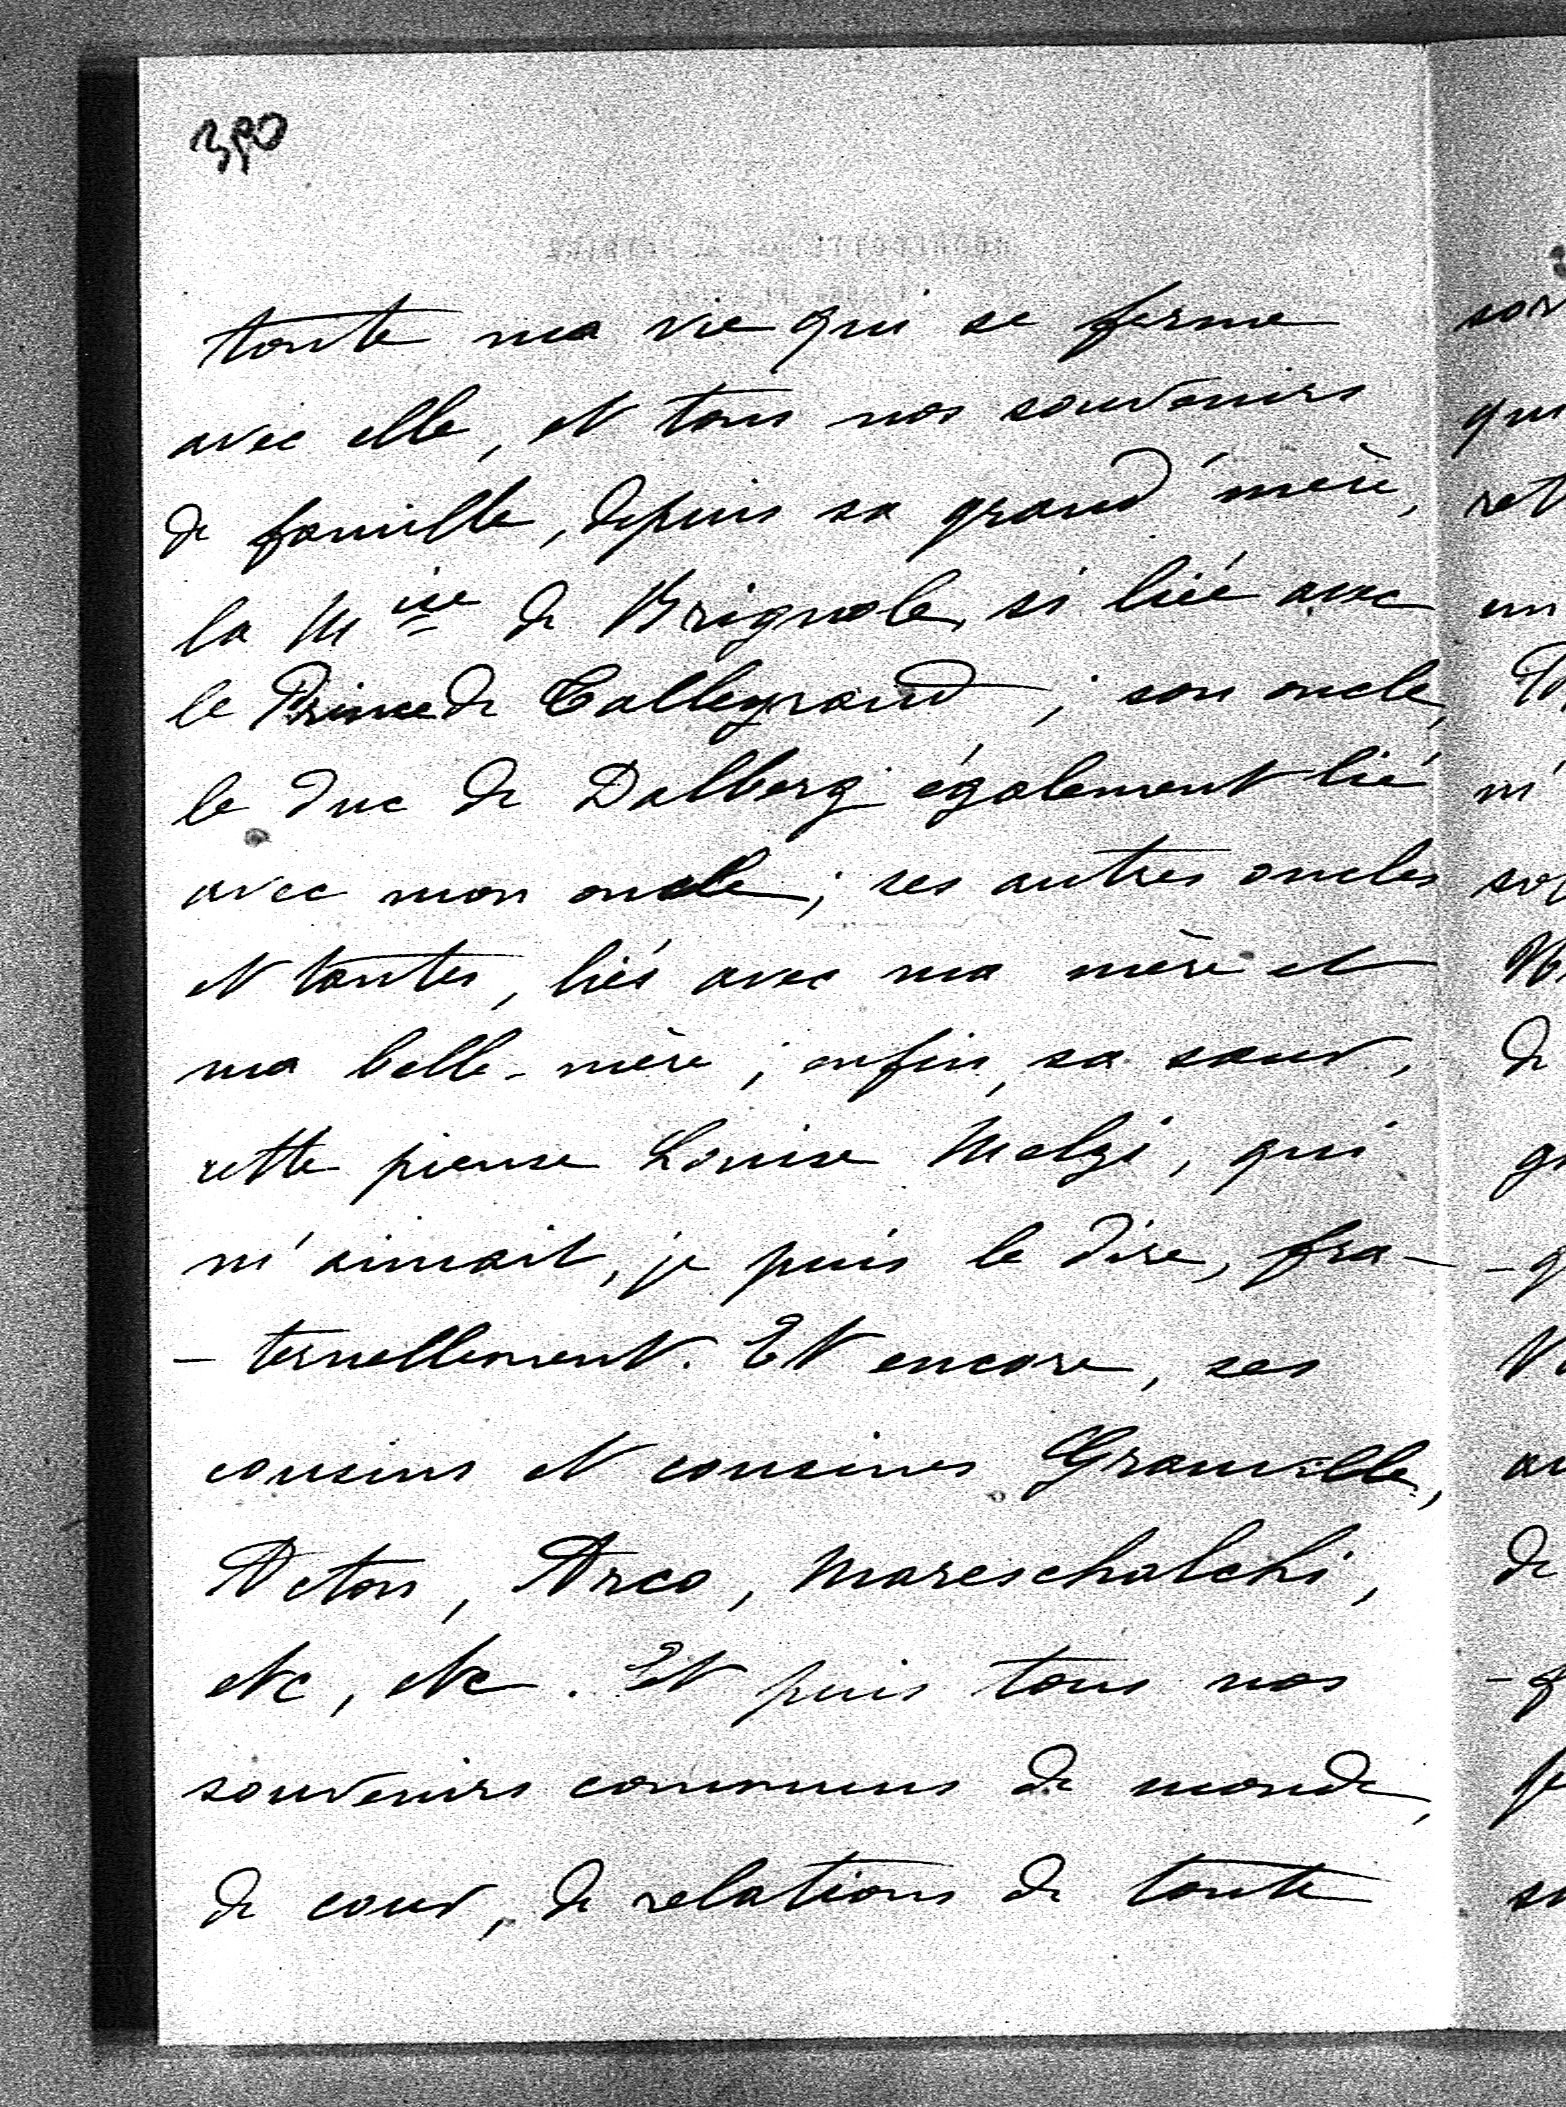 390
toute ma vie qui se ferme
avec elle, et tous nos souvenirs
de famille, depuis sa grand'mère,
la M^ise de Brignole, si liée avec
le Prince de Talleyrand ; son oncle,
le duc de Dalberg également lié
avec mon oncle ; ses autres oncles
et tantes, liés avec ma mère et
ma belle-mère ; enfin, sa sœur,
cette pieuse Louise Melzi, qui
m'aimait, je puis le dire, fra-
- ternellement. Et encore, ses
cousins et cousines Granville,
Acton, Arco, Mareschalchi,
etc, etc. Et puis tous nos
souvenirs communs de monde,
de cour, de relations de toute